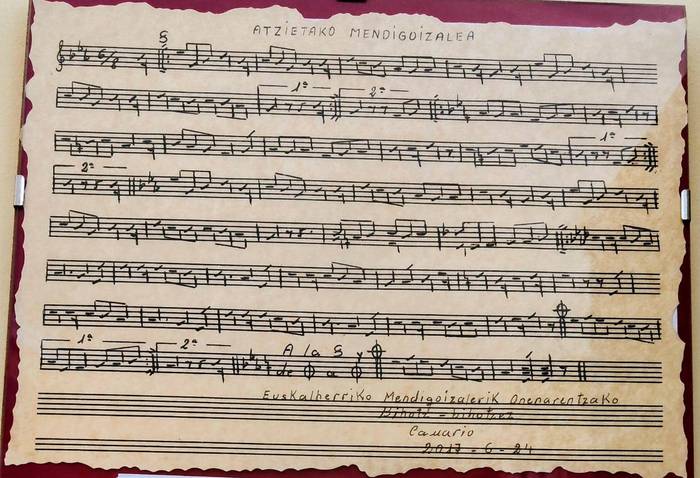 ATZIETAKO MENDIGOIZALEA
6/8
1ª
2ª
1ª
2ª
1ª 2ª A la § y
de a
Euskalherriko Mendigoizalerik Onenarentzako
Bihotz-bihotzez
Camario
2017-6-24